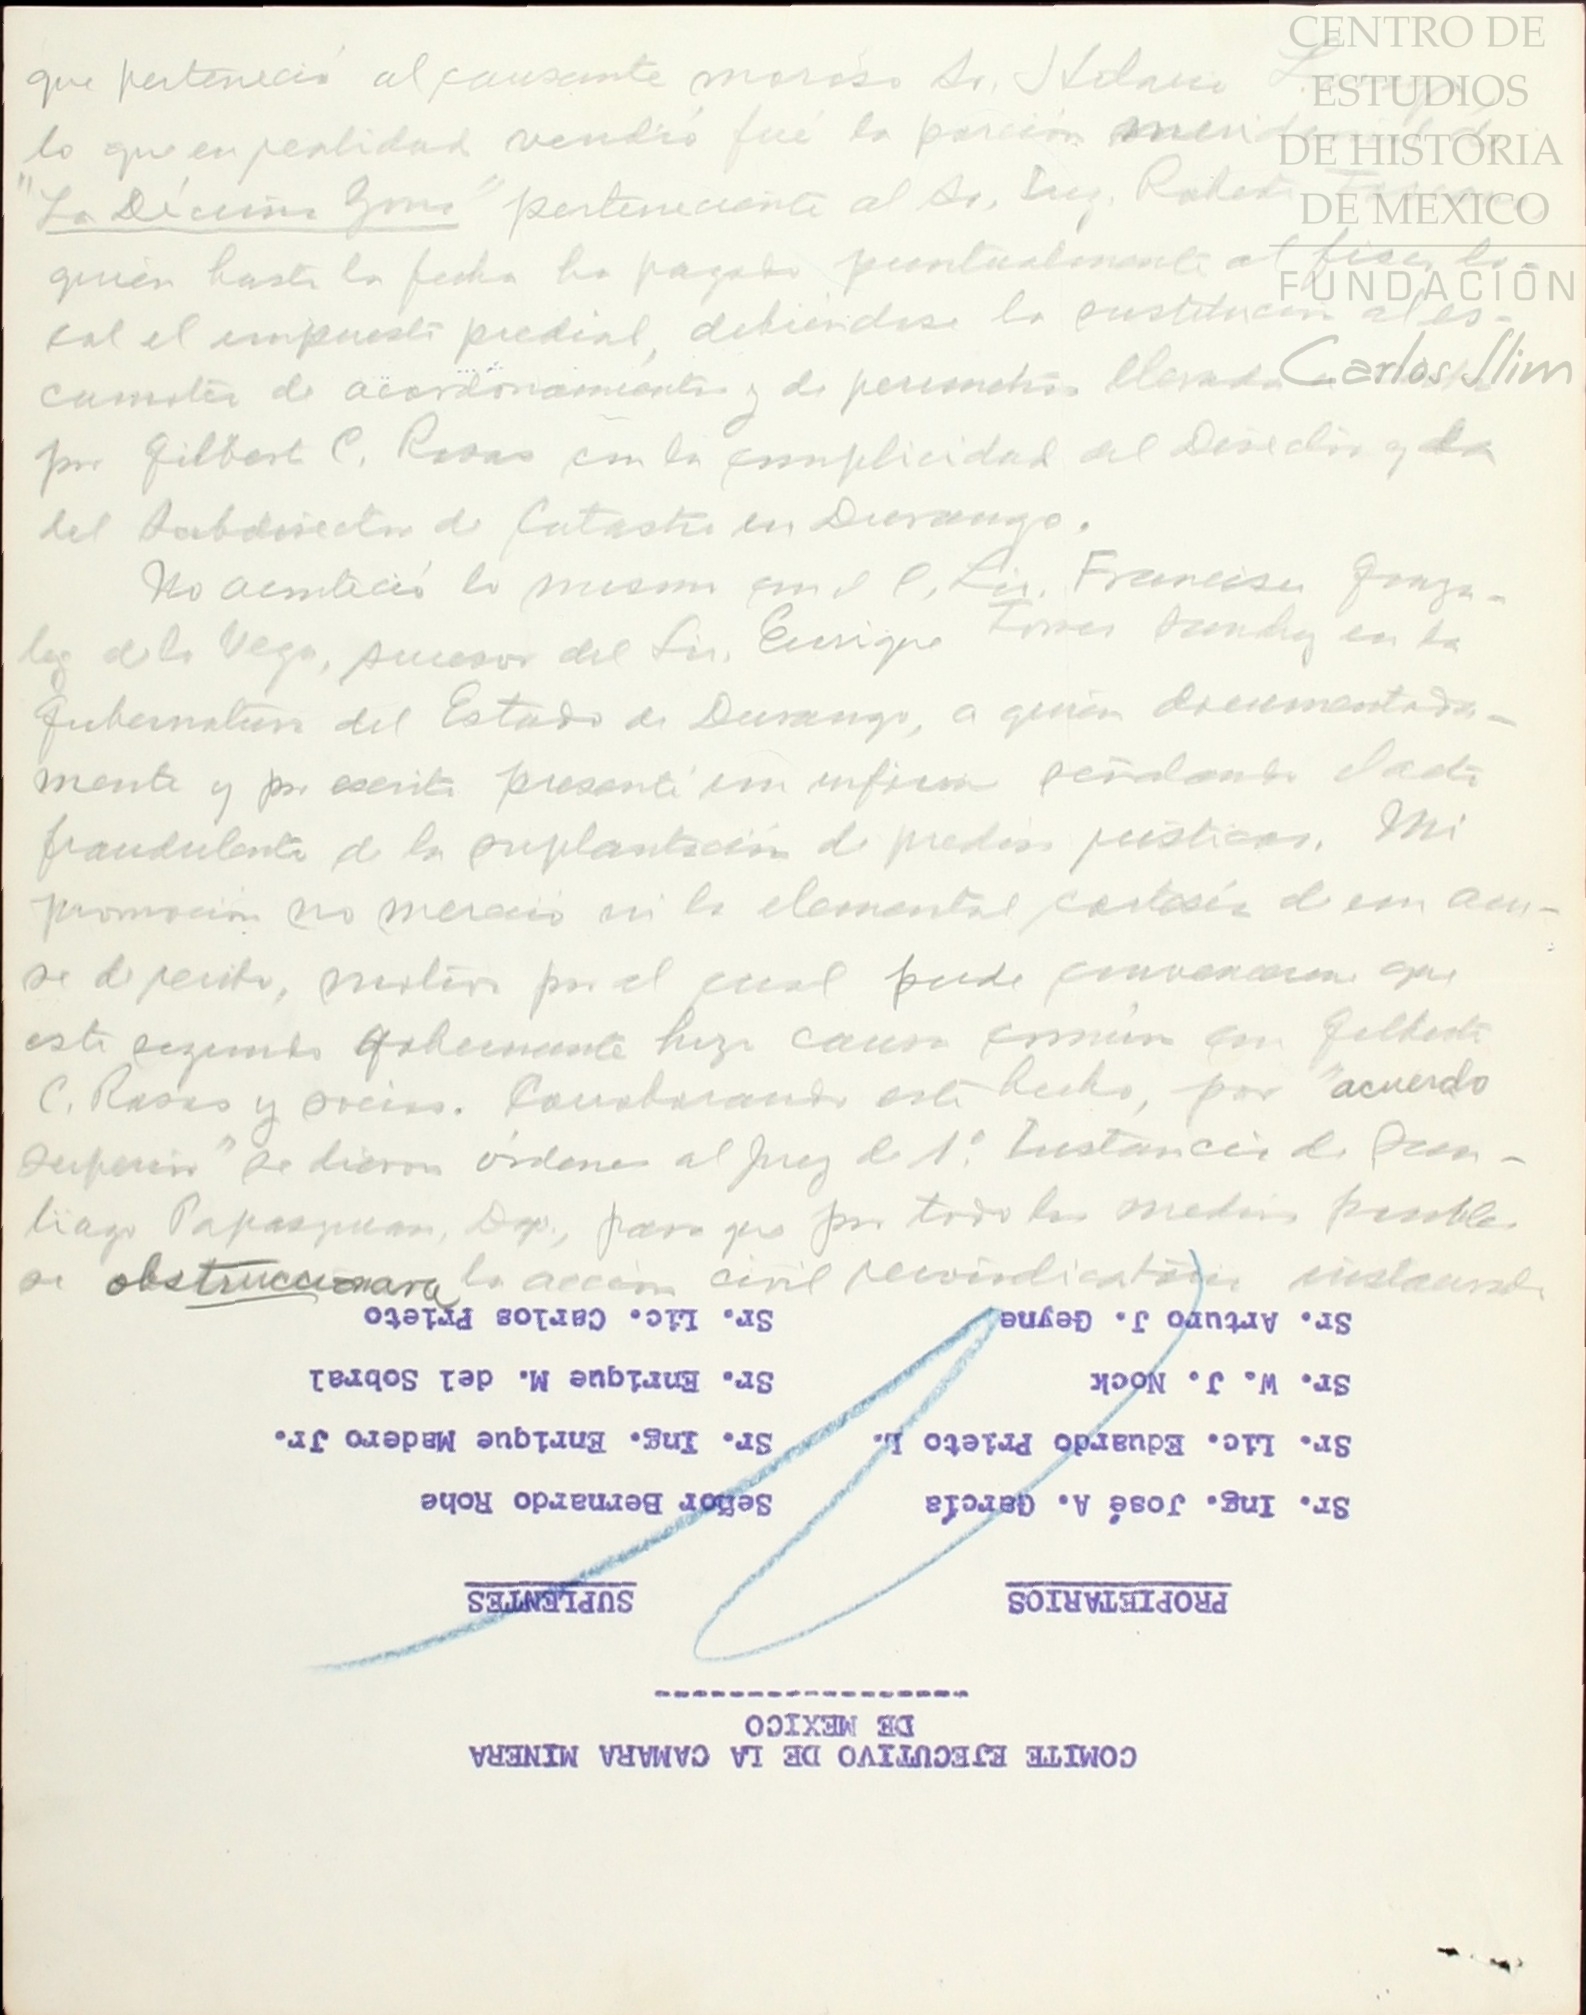 CENTRO DE
ESTUDIOS
DE HISTORIA
DE MEXICO
FUNDACIÓN
Carlos Slim
que perteneció al causante moroso Sr. Hilario
lo que en realidad vendió fué la porción meridional de
"La Décima Zona" perteneciente al Sr. Ing. Roberto
quien hasta la fecha ha pagado puntualmente al fisco lo-
cal el impuesto predial, debiéndose la sustitución al es-
camoteo de acordonamientos y de perímetros llevado a cabo
por Gilbert C. Rosas con la complicidad del Director y la
del Subdirector de Catastro en Durango.
No aconteció lo mismo con el C. Lic. Francisco Gonzá-
lez de la Vega, sucesor del Lic. Enrique Torres Sánchez en la
Gubernatura del Estado de Durango, a quien documentada-
mente y por escrito presenté un informe señalando el acto
fraudulento de la suplantación de predios rústicos. Mi
promoción no mereció ni la elemental cortesía de un acu-
se de recibo, motivo por el cual pude convencerme que
este segundo gobernante hizo causa común con Gilberto
C. Rosas y socios. Corroborando este hecho, por "acuerdo
superior" se dieron órdenes al Juez de 1ª. Instancia de San-
tiago Papasquiaro, Dgo., para que por todos los medios posibles
se obstruccionara la acción civil reivindicatoria instaurada
COMITE EJECUTIVO DE LA CAMARA MINERA
DE MEXICO
-----------------
PROPIETARIOS SUPLENTES
Sr. Ing. José A. García Señor Bernardo Rohe
Sr. Lic. Eduardo Prieto L. Sr. Ing. Enrique Madero Jr.
Sr. W. J. Nock Sr. Enrique M. del Sobral
Sr. Arturo J. Geyne Sr. Lic. Carlos Prieto